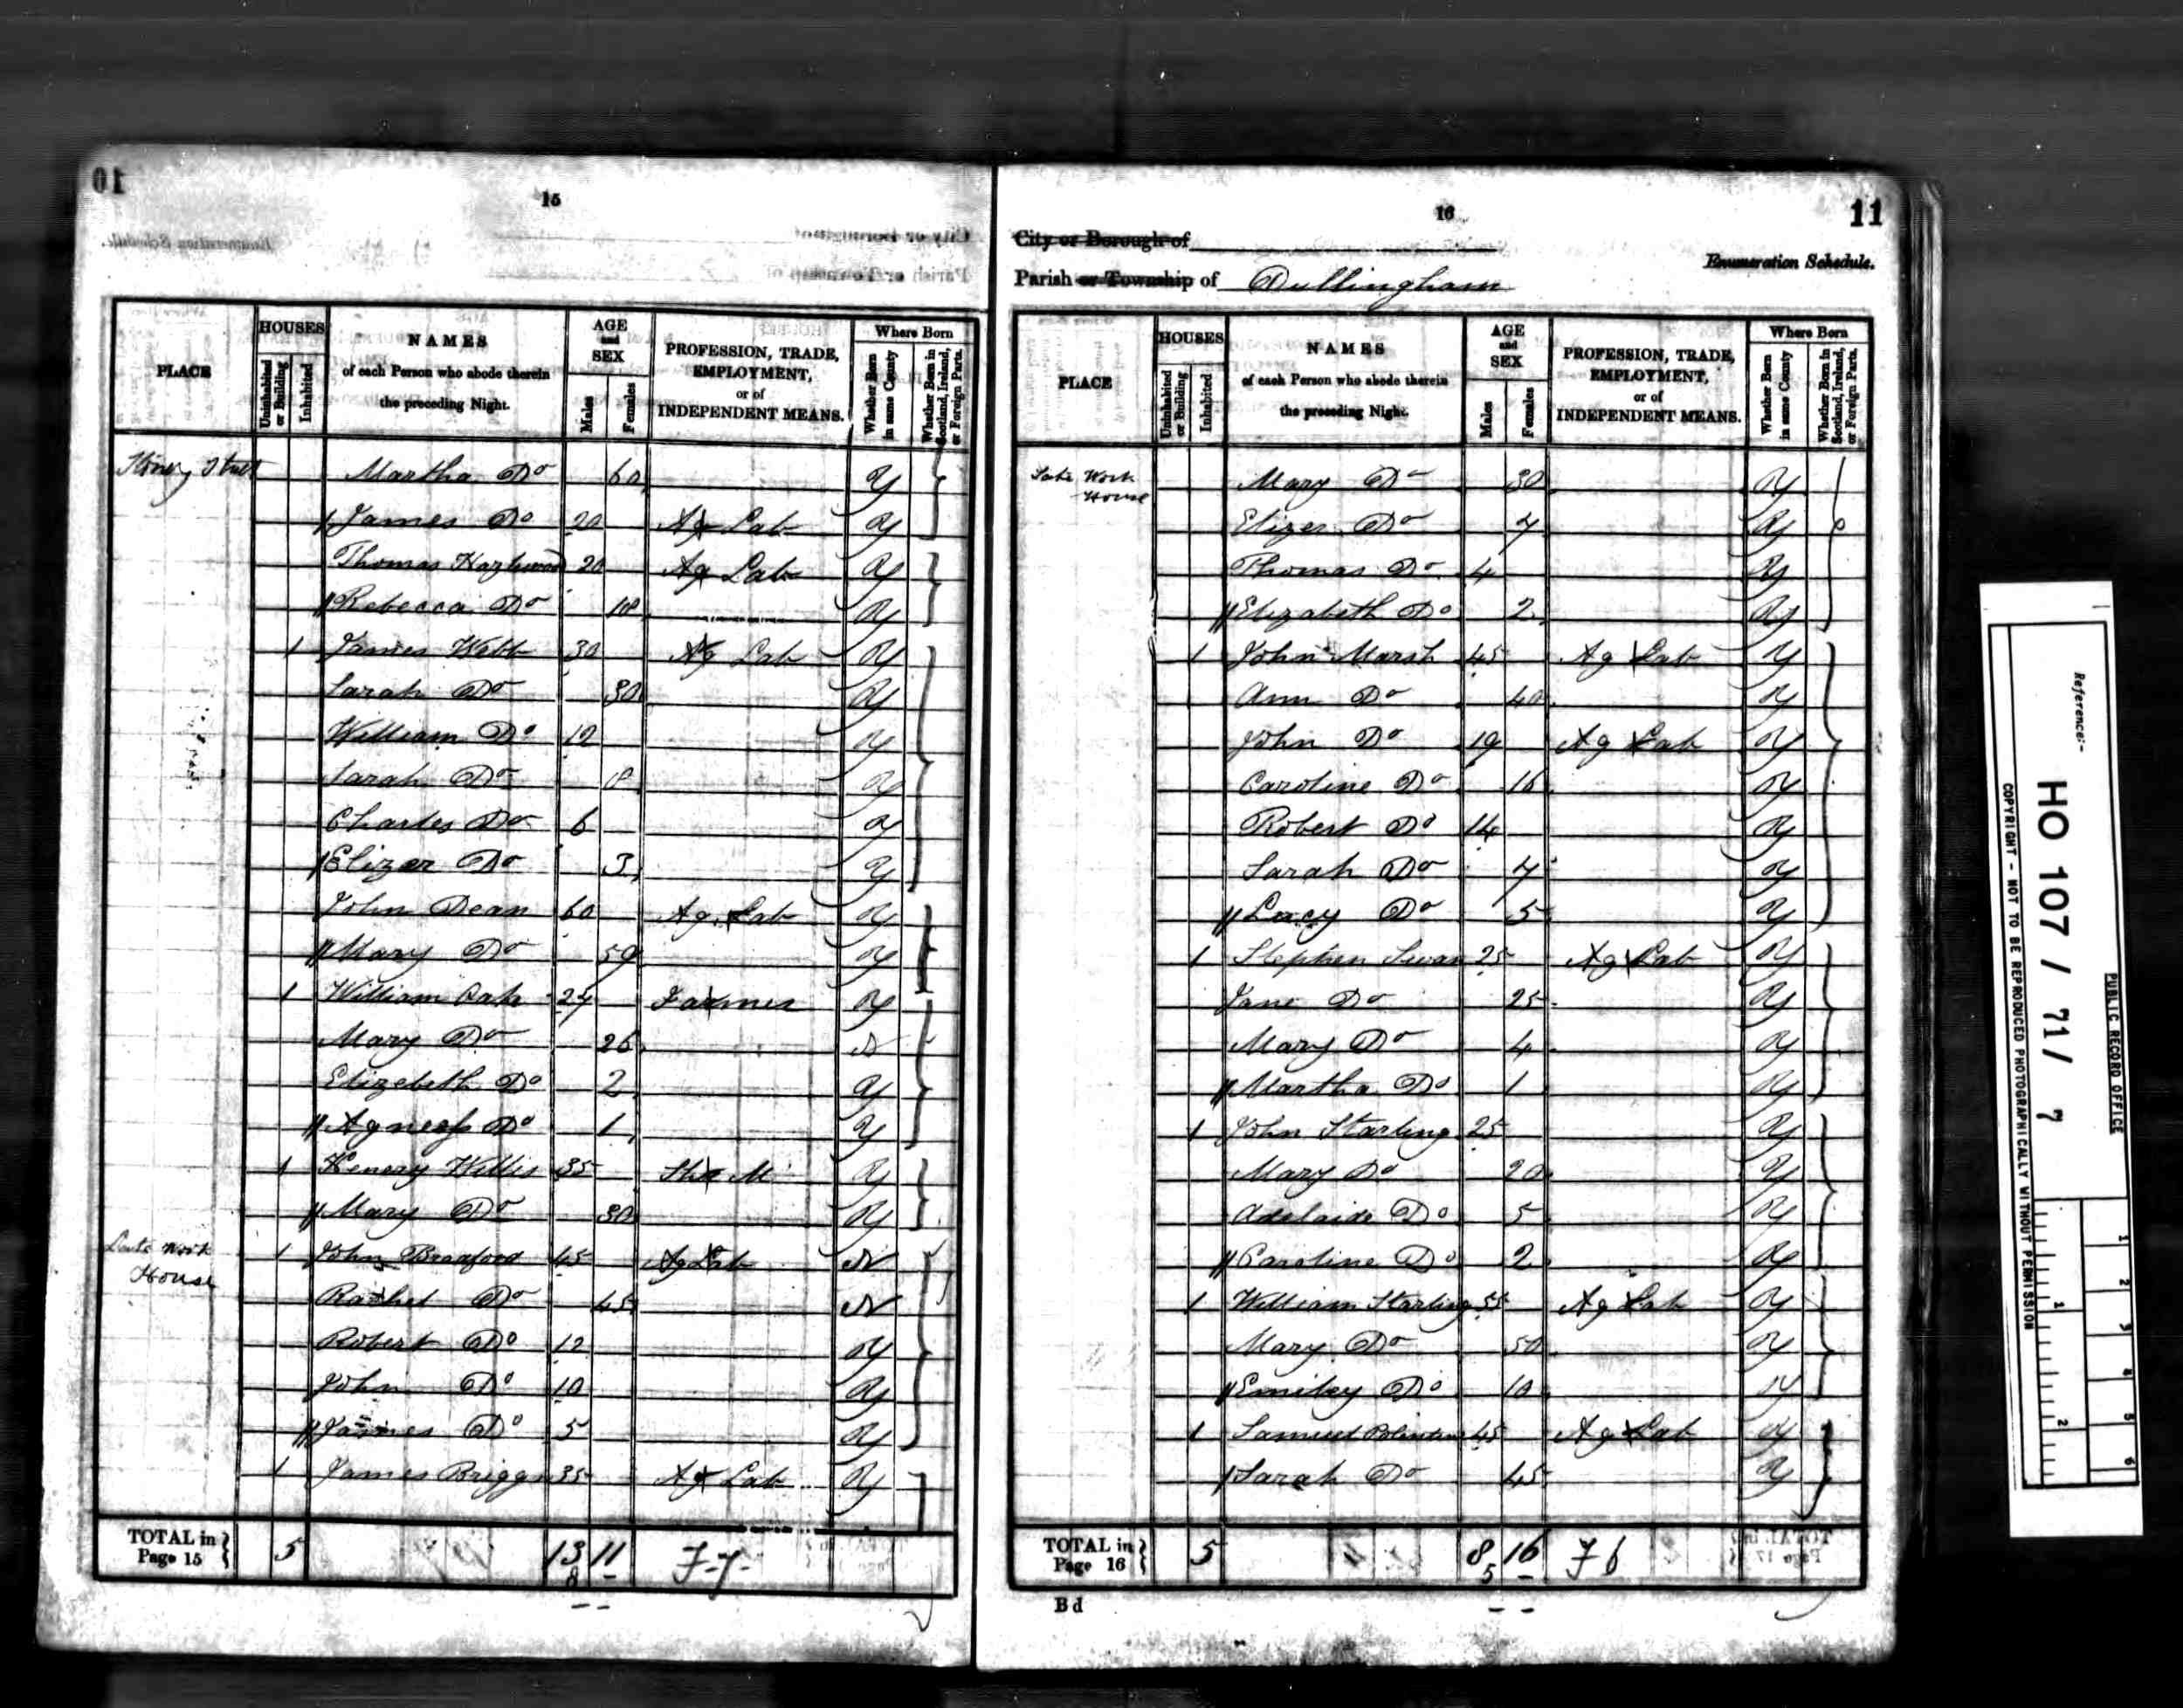 10
15
PLACE
HOUSES
Uninhabited or Building
Inhabited
NAMES
of each Person who abode therein
the preceding Night.
AGE
and
SEX
Males
Females
PROFESSION, TRADE,
EMPLOYMENT,
or of
INDEPENDENT MEANS.
Where Born
Whether Born in same County
Whether Born in Scotland, Ireland, or Foreign Parts.
Stoney Street Martha Do 60 Y
James Do 20 Ag Lab Y
Thomas Hazlewood 20 Ag Lab Y
Rebecca Do 18 Y
1 James Webb 30 Ag Lab Y
Sarah Do 30 Y
William Do 12 Y
Sarah Do 8 Y
Charles Do 6 Y
Elizar Do 3 Y
John Dean 60 Ag Lab Y
Mary Do 59 Y
1 William 24 Farmer Y
Mary Do 26 N
Elizebeth Do 2 Y
Agness Do 1 Y
1 Henery Willis 35 Sho M Y
Mary Do 30 Y
Late Work House 1 John Bradford 45 Ag Lab N
Rachel Do 45 N
Robert Do 12 Y
John Do 10 Y
James Do 5 Y
1 James Briggs 35 Ag Lab Y
TOTAL in Page 15 5 13 11
8
16
11
City or Borough of
Enumeration Schedule.
Parish or Township of Dullingham
PLACE
HOUSES
Uninhabited or Building
Inhabited
NAMES
of each Person who abode therein
the preceding Night.
AGE
and
SEX
Males
Females
PROFESSION, TRADE,
EMPLOYMENT,
or of
INDEPENDENT MEANS.
Where Born
Whether Born in same County
Whether Born in Scotland, Ireland, or Foreign Parts.
Late Work House Mary Do 30 Y
Elizer Do 7 Y
Thomas Do 4 Y
Elizabeth Do 2 Y
1 John Marsh 45 Ag Lab Y
Ann Do 40 Y
John Do 19 Ag Lab Y
Caroline Do 16 Y
Robert Do 14 Y
Sarah Do 7 Y
Lucy Do 5 Y
1 Stephen Swan 25 Ag Lab Y
Jane Do 25 Y
Mary Do 4 Y
Martha Do 1 Y
1 John Starling 25 Y
Mary Do 20 Y
Adelaide Do 5 Y
Caroline Do 2 Y
1 William Starling 55 Ag Lab Y
Mary Do 50 Y
Emiley Do 10 Y
1 Samuel 45 Ag Lab Y
Sarah Do 45 Y
TOTAL in Page 16 5 8 16
5
Bd
Reference:-
HO 107 / 71 / 7
PUBLIC RECORD OFFICE
COPYRIGHT - NOT TO BE REPRODUCED PHOTOGRAPHICALLY WITHOUT PERMISSION
1
2
3
4
5
6
1
2